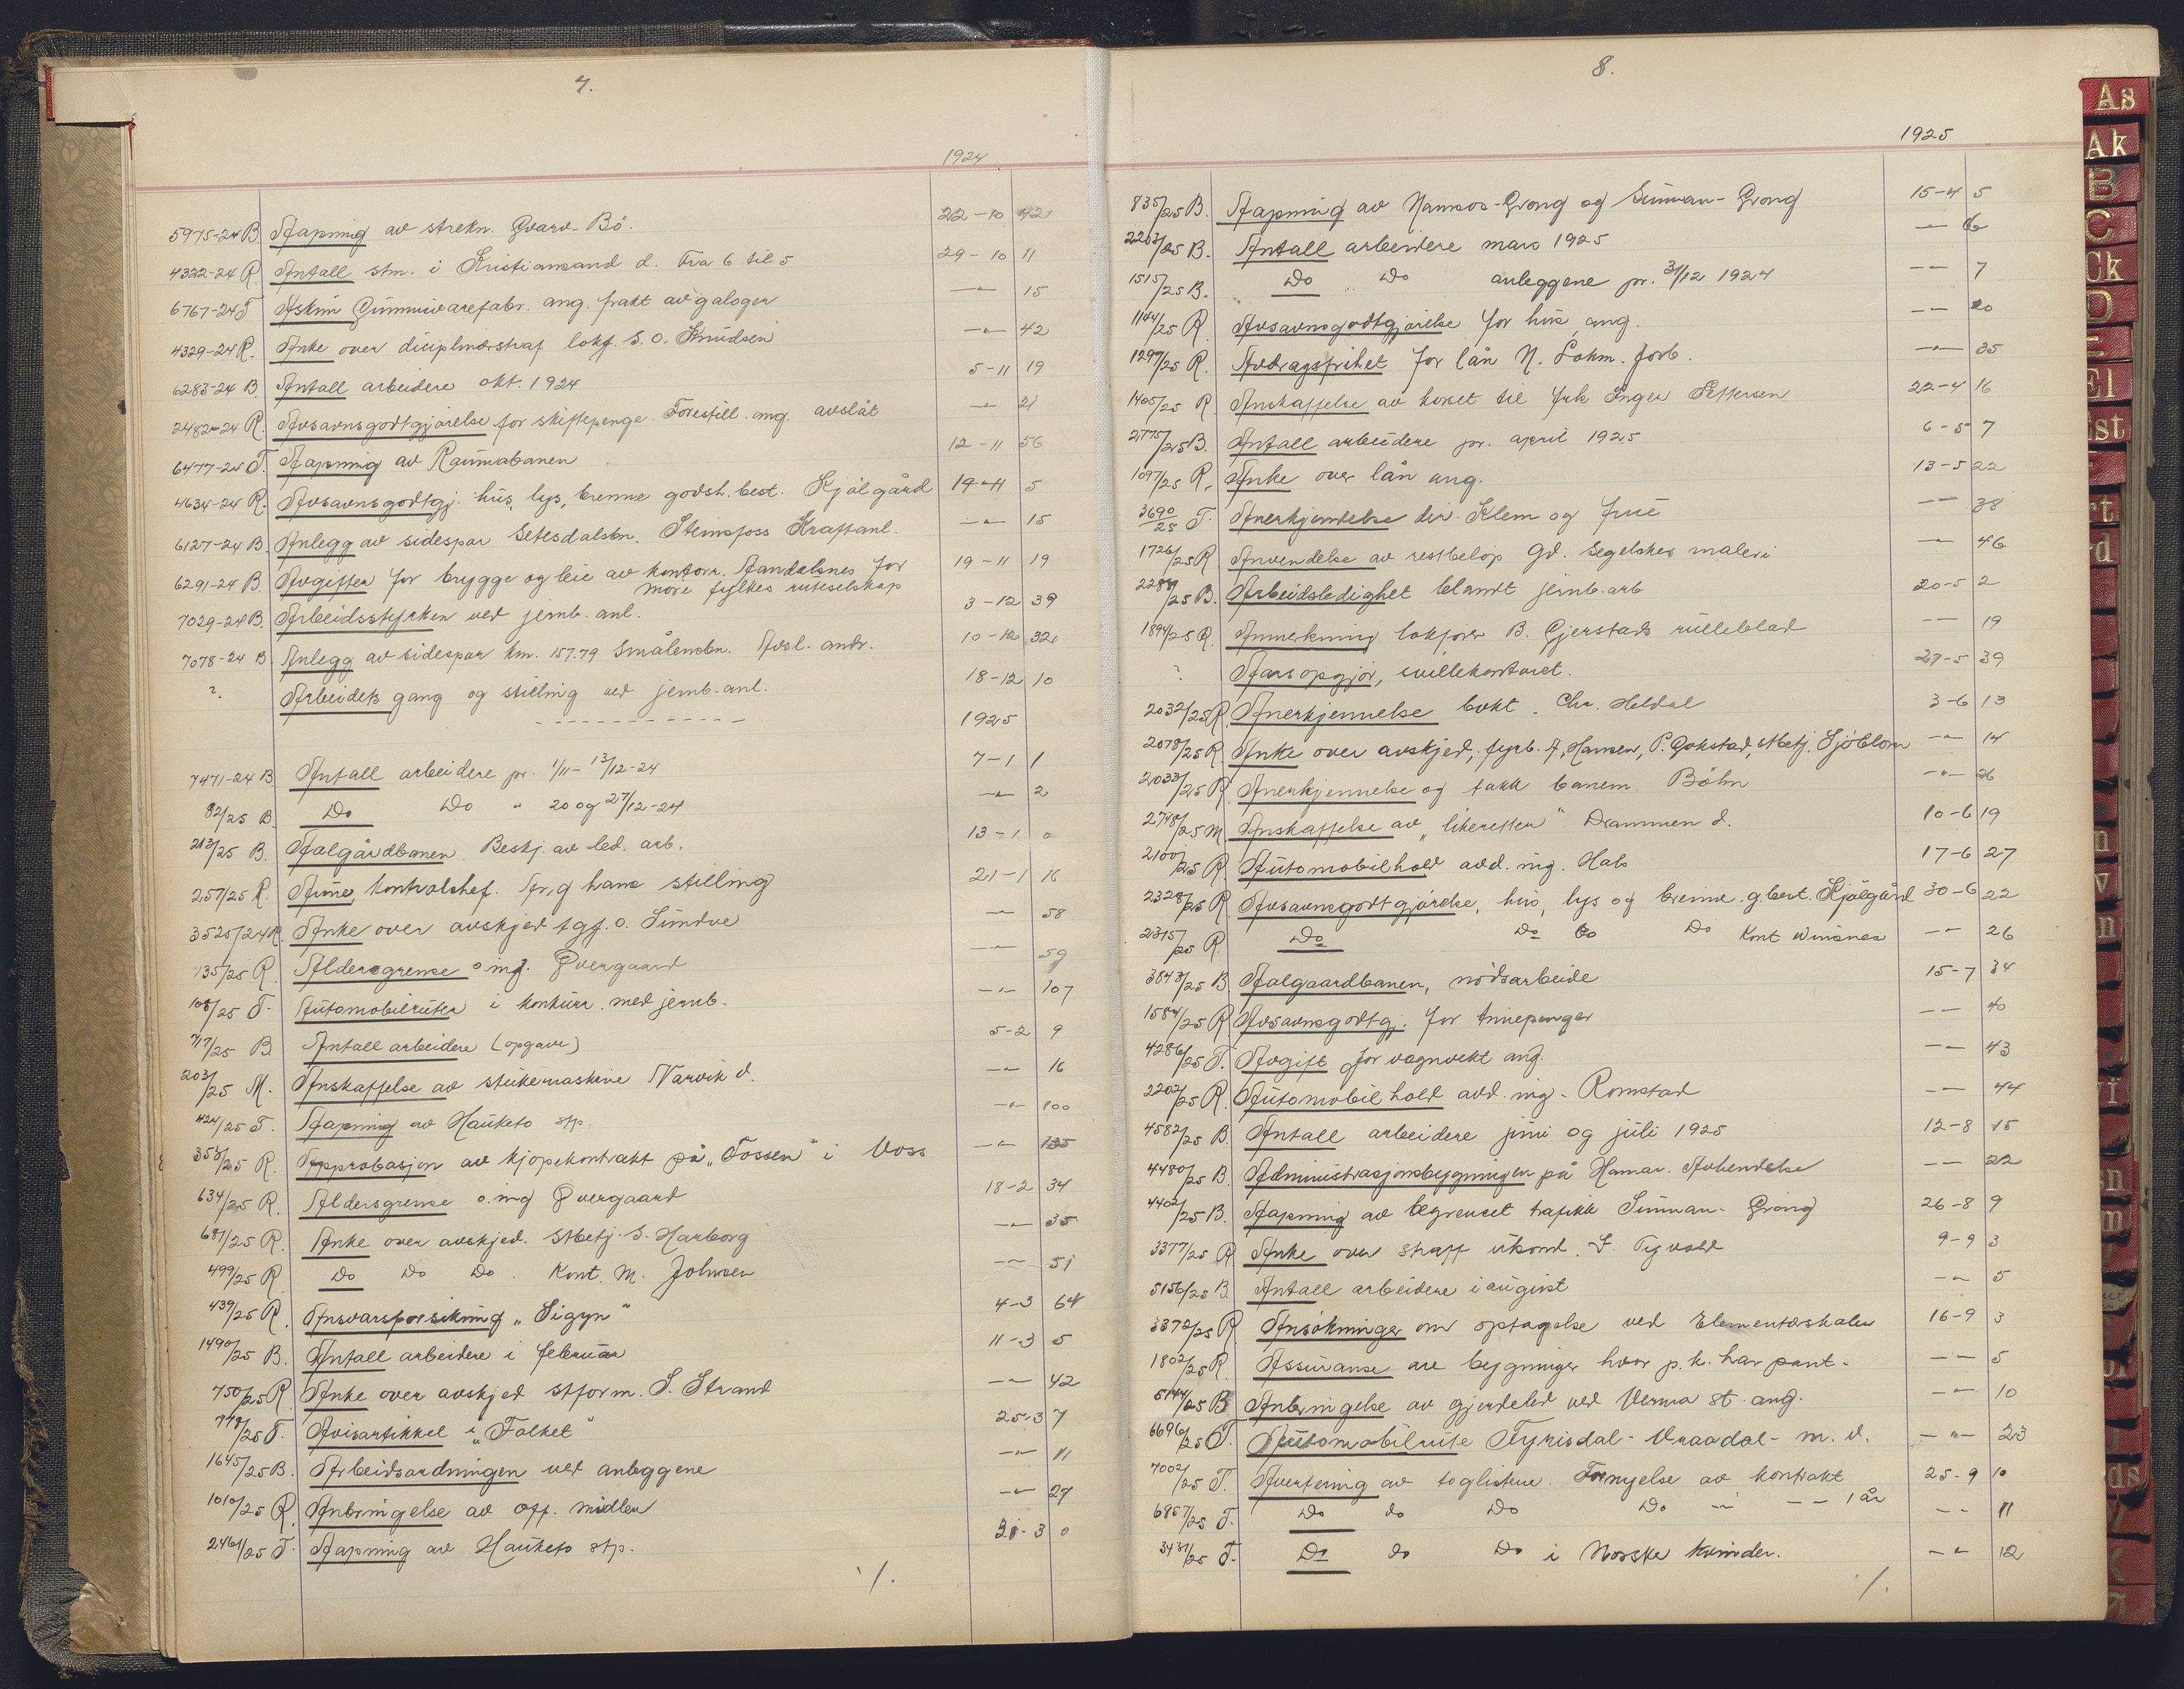 7.
1924
5975-24 B. Aapning av strekn. Gvarv-Bö. 22-10 42
4322-24 R. Antall stm. i Kristiansand d. Fra 6 til 5 29-10 11
6767-24 T Askim Gummivarefabr. ang. frakt av galoger -"- 15
4329-24 R. Anke over diciplinærstraf lokf. S. O. Knudsen -"- 42
6283-24 B. Antall arbeidere okt. 1924 5-11 19
2482-24 R. Avsavnsgodtgjörelse for skiftepenge. Forestill. ang. avslåt -"- 21
6477-24 T. Aapning av Raumabanen 12-11 56
4634-24 R. Avsavnsgodtgj. hus, lys, brenne godsh.best. Kjölgård 19-11 5
6127-24 B. Anlegg av sidespor Setesdalsbn. Steinsfoss Kraftanl. -"- 15
6291-24 B. Avgifter for brygge og leie av kontorr. Aandalsnes for 19-11 19
Möre fylkes ruteselskap
7029-24 B. Arbeidsstyrken ved jernb. anl. 3-12 39
7078-24 B Anlegg av sidespor km. 157.79 Smålensbn. Avsl. andr. 10-12 32
?. Arbeidets gang og stilling ved jernb. anl. 18-12 10
1925
7471-24 B Antall arbeidere pr. 1/11 - 13/12-24 7-1 1
82/25 B. Do Do " 20 og 27/12-24 -"- 2
213/25 B. Aalgårdbanen. Beskj. av led. arb. 13-1 0
257/25 R. Aune, kontrolchef. Ang hans stilling 21-1 16
3525/24 R. Anke over avskjed tgf. O. Sundve -"- 58
135/25 R. Aldersgrense o.ing. Qvergaard -"- 59
108/25 T. Automobilruter i konkurr. med jernb. -"- 107
717/25 B. Antall arbeidere (opgave) 5-2 9
203/25 M. Anskaffelse av stukemaskine Narvik d. -"- 16
424/25 T. Aapning av Hauketo stp. -"- 100
358/25 R. Approbasjon av kjöpekontrakt på "Fossen" i Voss -"- 135
634/25 R. Aldersgrense o.ing Qvergaard 18-2 34
687/25 R. Anke over avskjed. Stbetj. S. Harborg -"- 35
499/25 R Do Do Do. Kont. M. Johnsen -"- 51
439/25 R. Ansvarsforsikring "Sigyn" 4-3 64
1490/25 B. Antall arbeidere i februar 11-3 5
750/25 R. Anke over avskjed stform. S. Strand -"- 42
778/25 T. Avisartikkel i "Folket" 25-3 7
1645/25 B. Arbeidsordningen ved anleggene -"- 11
1010/25 R. Anbringelse av off. midler -"- 27
2461/25 T. Aapning av Hauketo stp. 31-3 0
./.
8.
1925
835/25 B. Aapning av Namsos-Grong og Sunnan-Grong 15-4 5
2263/25 B. Antall arbeidere mars 1925 -"- 6
1515/25 B. Do Do anleggene pr. 31/12 1924 -"- 7
1144/25 R. Avsavnsgodtgjörelse for hus ang. -"- 20
1299/25 R. Avdragsfrihet for lån N. Lokm. forb. -"- 35
1405/25 R Anskaffelse av korset til frk Inger Steffensen 22-4 16
2775/25 B. Antall arbeidere pr. april 1925 6-5 7
1097/25 R. Anke over lån ang. 13-5 22
3690/25 T. Anerkjendelse dir. Klem og frue -"- 38
1726/25 R Anvendelse av restbelöp Gd. Segelckes maleri -"- 46
2284/25 B. Arbeidsledighet blandt jernb. arb 20-5 2
1894/25 R. Anmerkning lokförer B. Gjerstads rulleblad -"- 19
? Aarsopgjör, svillekontoret. 27-5 39
2032/25 R Anerkjennelse bokt. Chr. Heldal 3-6 13
2078/25 R Anke over avskjed, fyrb. A. Hansen, P. Gokstad, stbetj. Sjöblom -"- 14
2033/25 R Anerkjennelse og takk banem. Böhn -"- 26
2748/25 M Anskaffelse av "likeretter" Drammen d. 10-6 19
2100/25 R Automobilhold avd. ing. Hals 17-6 27
2328/25 R Avsavnsgodtgjörelse, hus, lys og brenne g.best. Kjölgård 30-6 22
2315/25 R. Do Do Do Do Kont Winsnes -"- 26
3843/25 B Aalgaardbanen, nödsarbeide 15-7 34
1584/25 R Avsavnsgodtgj. for timepenger -"- 40
4286/25 T. Avgift for vognvekt ang. -"- 43
2202/25 R. Automobilhold avd. ing. Romstad -"- 44
4582/25 B. Antall arbeidere juni og juli 1925 12-8 15
4480/25 B. Administrasjonsbygningen på Hamar. Avhendelse -"- 22
4402/25 B. Aapning av begrenset trafikk Sunnan-Grong 26-8 9
3377/25 R Anke over straff 9-9 3
5156/25 B Antall arbeidere i august -"- 5
3372/25 R Ansökninger om optagelse ved Elementærskolen 16-9 3
1802/25 R. Assuranse av bygninger hvor p.k. har pant. -"- 5
5144/25 B Anbringelse av gjerdeled ved Verma st. ang. -"- 10
6696/25 T. Automobilrute Fyrisdal-Vraadal-m. v. -"- 23
7002/25 T. Avertering av toglistene. Fornyelse av kontrakt 25-9 10
6857/25 T. Do do Do Do -"- -"- 1 år -"- 11
3431/25 T. Do do Do i Norske Kvinder. -"- 12
./.
As
Ak
B
C
Ck
D
El